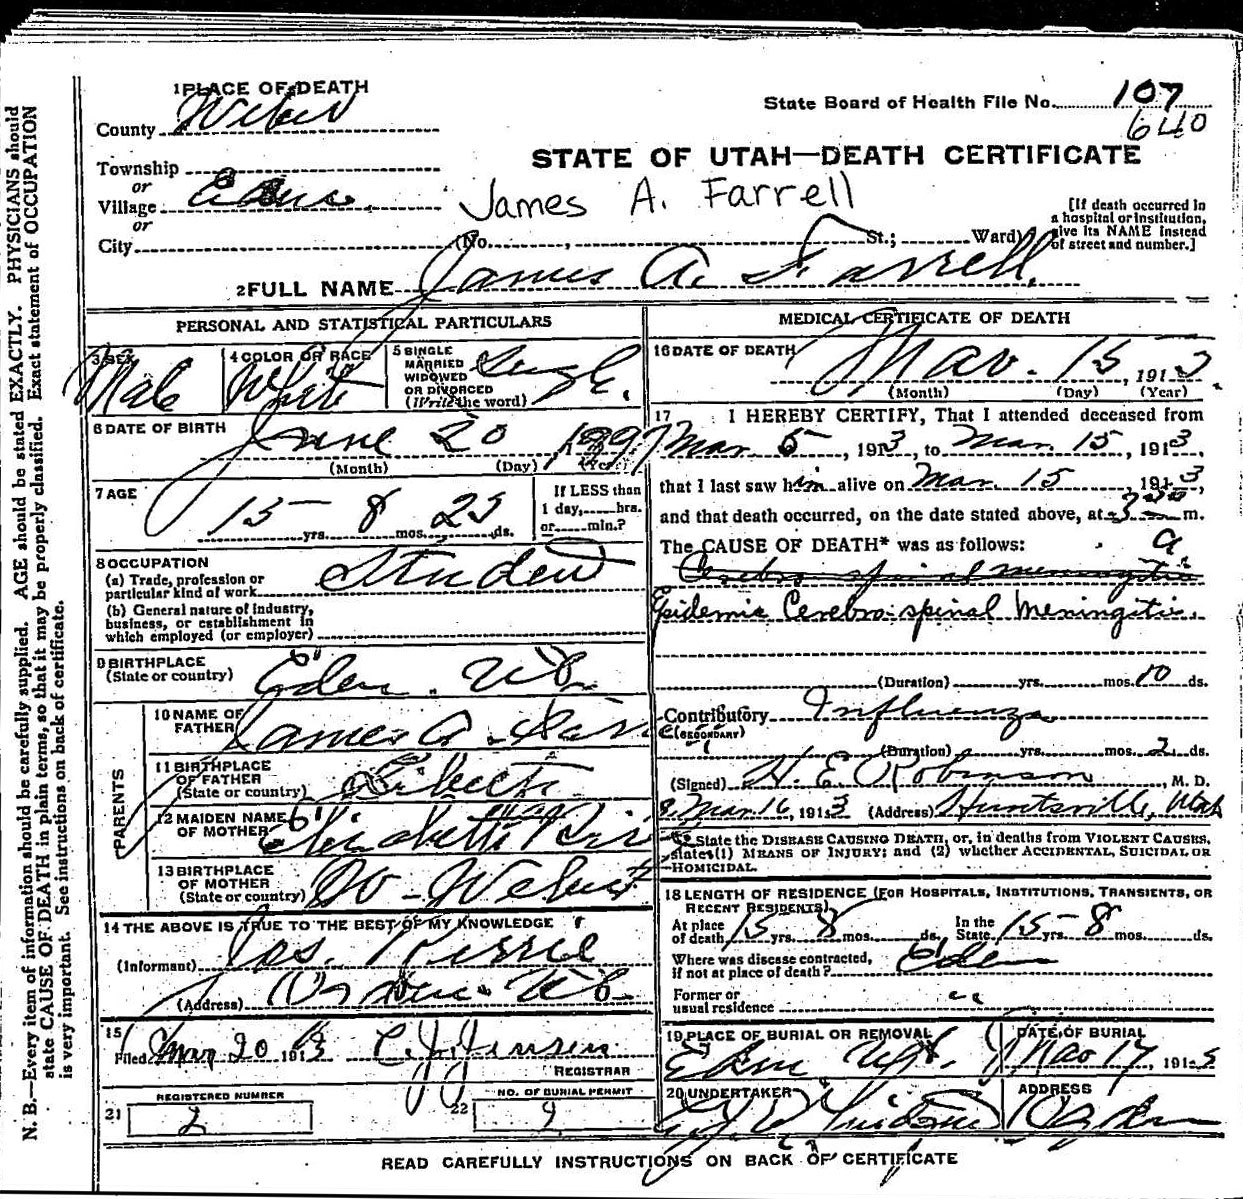 1 PLACE OF DEATH
State Board of Health File No. 107
640
County Weber
STATE OF UTAH—DEATH CERTIFICATE
Township
or
Village Eden
or
James A. Farrell
City (No. , St.; Ward)
[If death occurred in
a hospital or institution,
give its NAME instead
of street and number.]
2 FULL NAME James A. Farrell.
PERSONAL AND STATISTICAL PARTICULARS
3 SEX Male
4 COLOR OR RACE White
5 SINGLE
MARRIED
WIDOWED
OR DIVORCED
(Write the word) Single.
6 DATE OF BIRTH June 20 1897
(Month) (Day) (Year)
7 AGE 15 yrs. 8 mos. 25 ds.
If LESS than
1 day, hrs.
or min.?
8 OCCUPATION
(a) Trade, profession or
particular kind of work Student
(b) General nature of industry,
business, or establishment in
which employed (or employer)
9 BIRTHPLACE
(State or country) Eden. Ut.
PARENTS
10 NAME OF
FATHER James A.
11 BIRTHPLACE
OF FATHER
(State or country)
12 MAIDEN NAME
OF MOTHER Elizabeth
13 BIRTHPLACE
OF MOTHER
(State or country)
14 THE ABOVE IS TRUE TO THE BEST OF MY KNOWLEDGE
(Informant) Jas.
(Address) Ogden. Ut.
15
Filed Mar 20 1913 C. J. Jensen
REGISTRAR
21 REGISTERED NUMBER 2
22 NO. OF BURIAL PERMIT 9
MEDICAL CERTIFICATE OF DEATH
16 DATE OF DEATH Mar. 15, 1913
(Month) (Day) (Year)
17 I HEREBY CERTIFY, That I attended deceased from
Mar 5, 1913, to Mar. 15, 1913,
that I last saw him alive on Mar. 15, 1913,
and that death occurred, on the date stated above, at 3 a m.
The CAUSE OF DEATH* was as follows:
Cerebro spinal meningitis
Epidemic Cerebro-spinal Meningitis.
(Duration) yrs. mos. 10 ds.
Contributory Influenza
(SECONDARY)
(Duration) yrs. mos. 2 ds.
(Signed) H. E. Robinson, M. D.
Mar 16, 1913 (Address) Huntsville, Utah
State the DISEASE CAUSING DEATH, or, in deaths from VIOLENT CAUSES,
state (1) MEANS OF INJURY; and (2) whether ACCIDENTAL, SUICIDAL OR
HOMICIDAL.
18 LENGTH OF RESIDENCE (FOR HOSPITALS, INSTITUTIONS, TRANSIENTS, OR
RECENT RESIDENTS)
At place of death 15 yrs. 8 mos. ds. In the State 15 yrs. 8 mos. ds.
Where was disease contracted,
if not at place of death? Eden
Former or
usual residence "
19 PLACE OF BURIAL OR REMOVAL
Eden Ut.
DATE OF BURIAL
Mar 17, 1913
20 UNDERTAKER
ADDRESS
Ogden
READ CAREFULLY INSTRUCTIONS ON BACK OF CERTIFICATE
N. B.—Every item of information should be carefully supplied. AGE should be stated EXACTLY. PHYSICIANS should
state CAUSE OF DEATH in plain terms, so that it may be properly classified. Exact statement of OCCUPATION
is very important. See instructions on back of certificate.